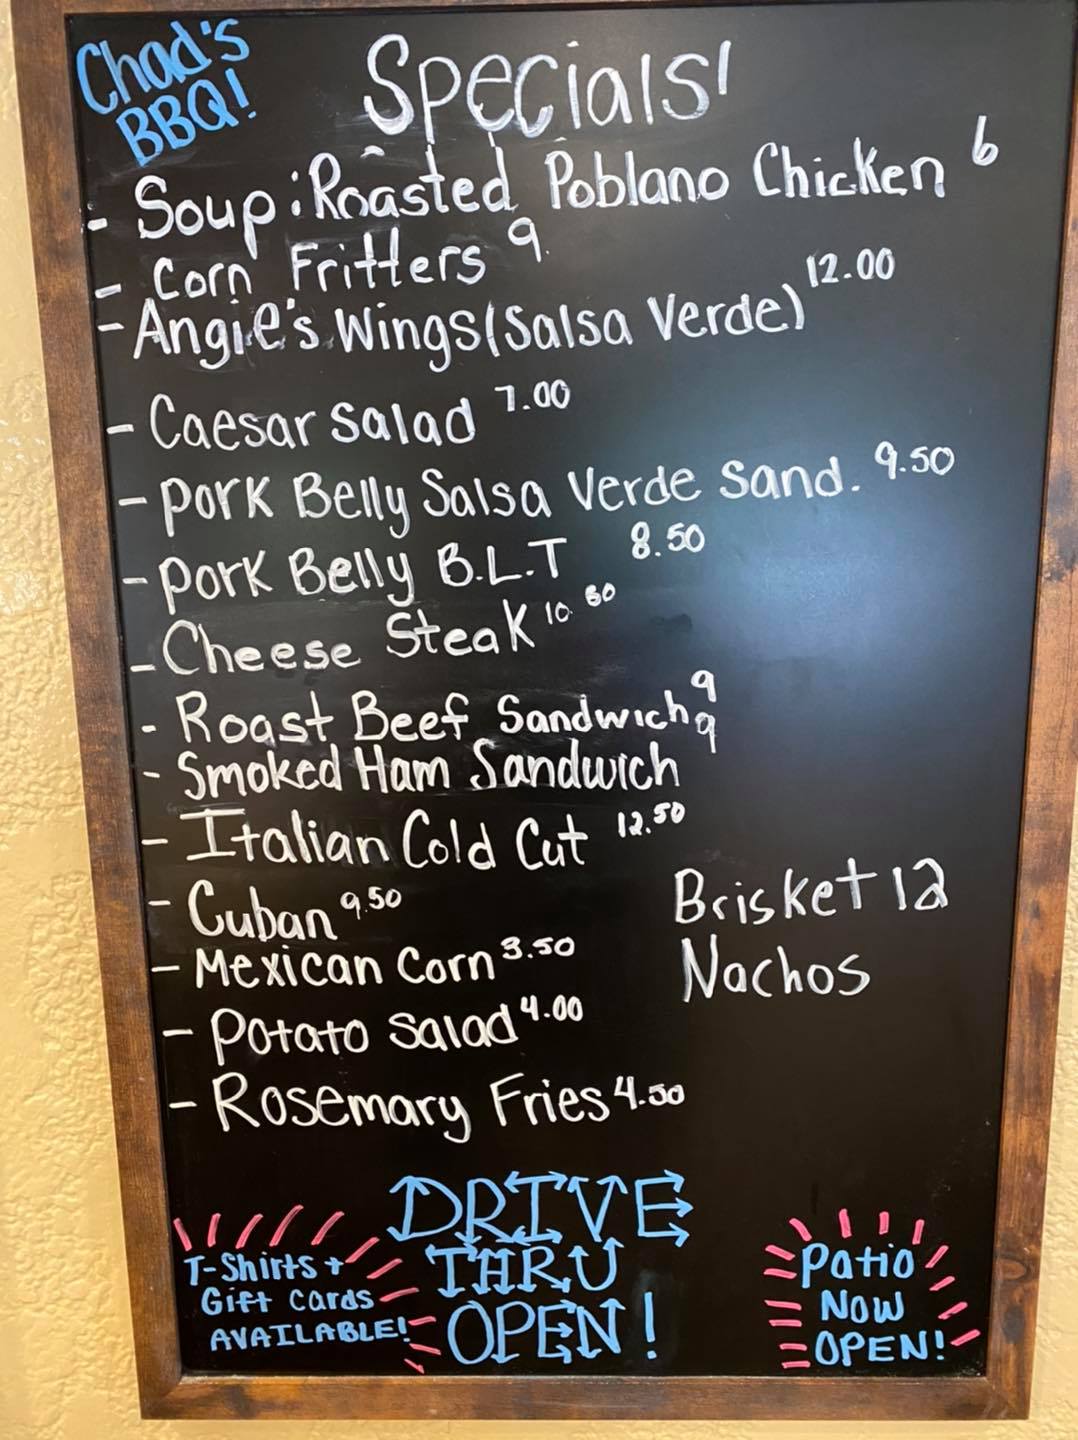 Chad's
BBQ!
Specials!
- Soup: Roasted Poblano Chicken 6
- Corn Fritters 9.
- Angie's Wings (Salsa Verde) 12.00
- Caesar Salad 7.00
- Pork Belly Salsa Verde Sand. 9.50
- Pork Belly B.L.T 8.50
- Cheese Steak 10.
- Roast Beef Sandwich 9
- Smoked Ham Sandwich 9
- Italian Cold Cut 12.50
- Cuban 9.50
- Mexican Corn 3.50
- Potato Salad 4.00
- Rosemary Fries 4.50
Brisket 12
Nachos
T-Shirts +
Gift Cards
AVAILABLE!
DRIVE
THRU
OPEN!
Patio
NOW
OPEN!